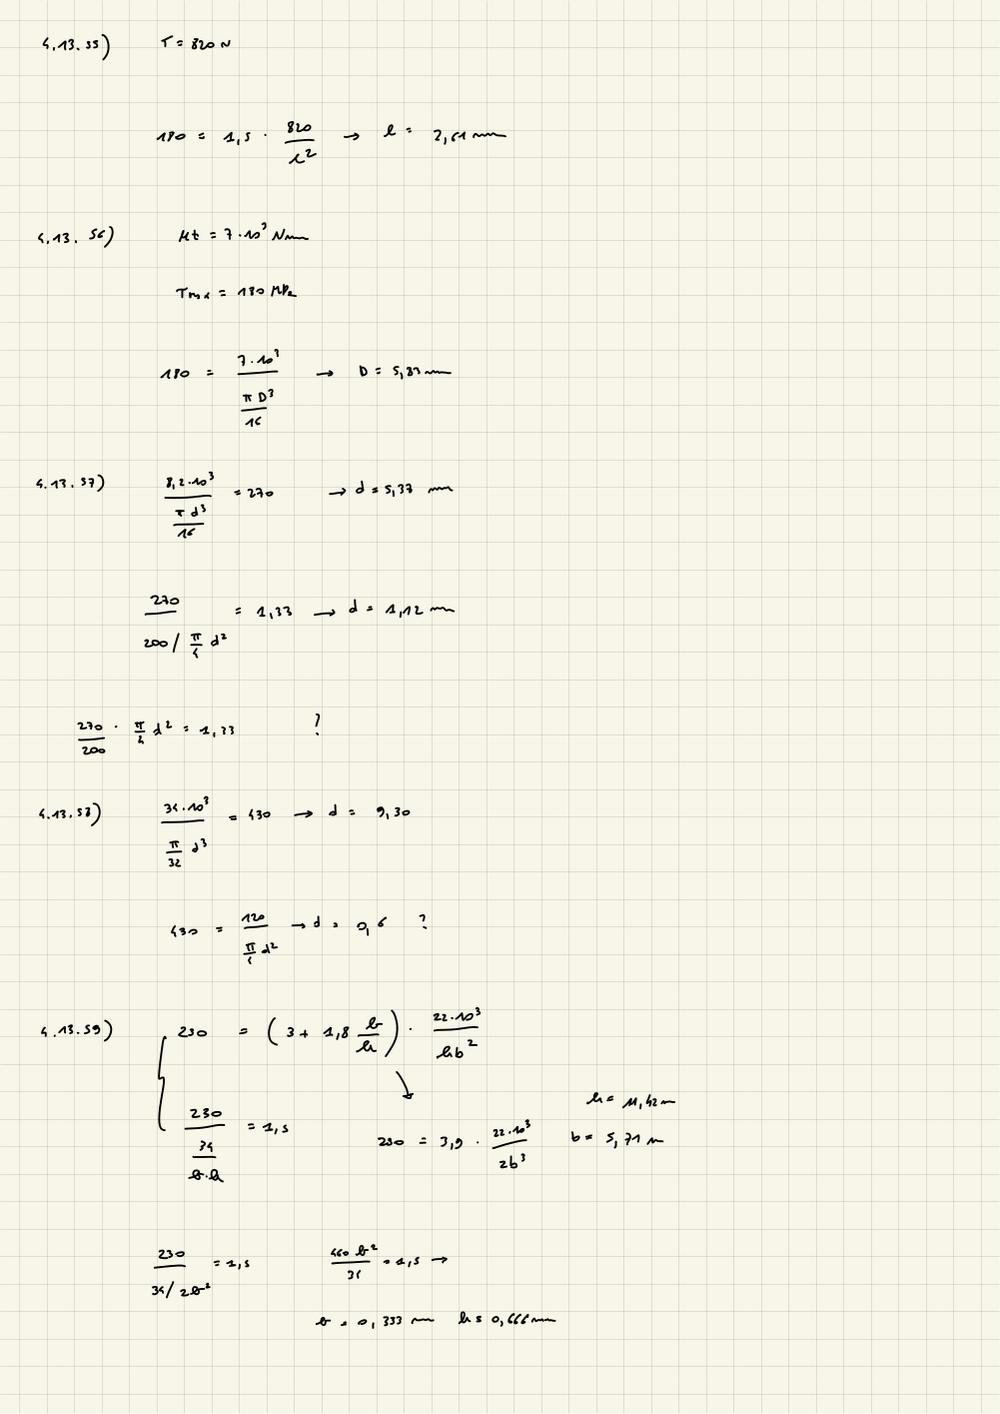 4.13.55) T = 820 N
180 = 1,5 · 820 / l² → l = 2,61 mm
4.13.56) Mt = 7·10³ Nmm
Tmax = 180 MPa
180 = 7·10³ / (π D³ / 16) → D = 5,83 mm
4.13.57) 8,2·10³ / (π d³ / 16) = 270 → d = 5,37 mm
270 / (200 / π/4 d²) = 1,33 → d = 1,12 mm
270/200 · π/4 d² = 1,33 ?
4.13.58) 34·10³ / (π/32 d³) = 430 → d = 9,30
430 = 120 / (π/4 d²) → d = 0,6 ?
4.13.59) 230 = (3 + 1,8 b/h) · 22·10³ / hb²
h = 11,42 m
230 / (34 / b·h) = 1,5 230 = 3,9 · 22·10³ / 2b³ b = 5,71 m
230 / (34/2b²) = 1,5 460 b² / 34 = 1,5 →
b = 0,333 mm h = 0,666 mm